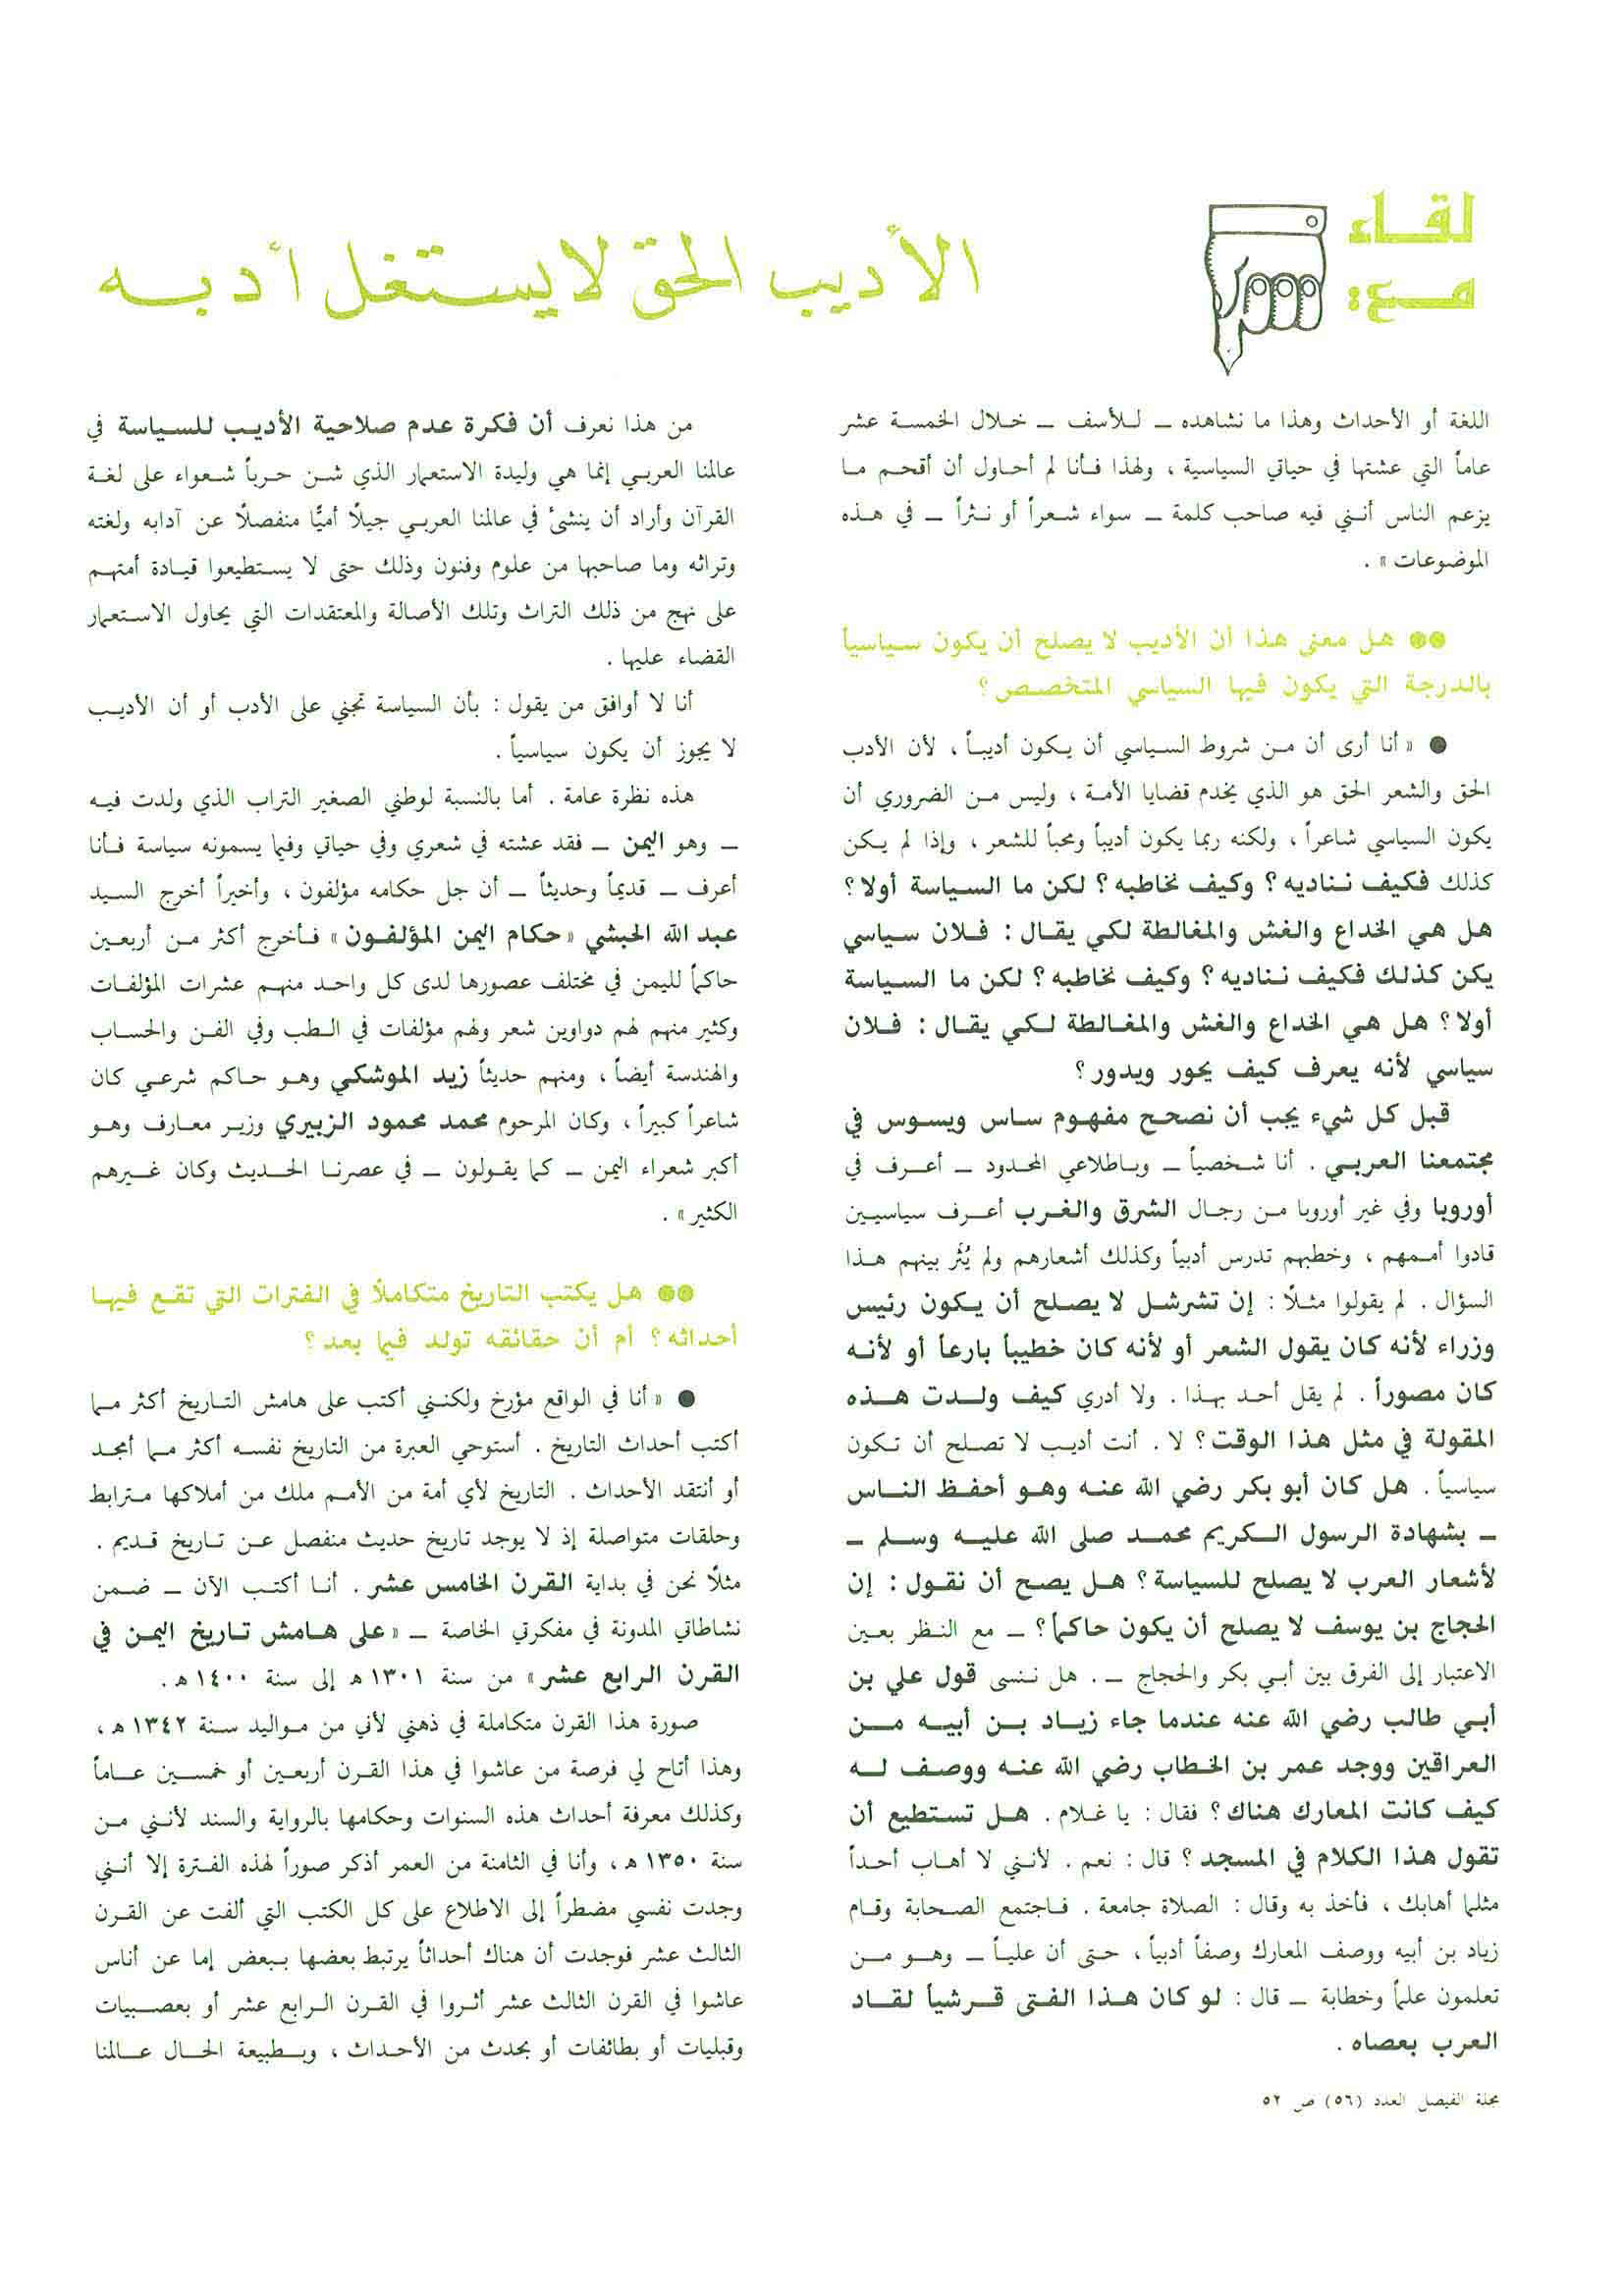 لقاء
مع:
الأديب الحق لا يستغل أدبه
اللغة أو الأحداث وهذا ما نشاهده ــ للأسف ــ خلال الخمسة عشر
عاماً التي عشتها في حياتي السياسية ، ولهذا فأنا لم أحاول أن أقحم ما
يزعم الناس أنني فيه صاحب كلمة ــ سواء شعراً أو نثراً ــ في هذه
الموضوعات » .
●● هل معنى هذا أن الأديب لا يصلح أن يكون سياسياً
بالدرجة التي يكون فيها السياسي المتخصص ؟
● « أنا أرى أن من شروط السياسي أن يكون أديباً ، لأن الأدب
الحق والشعر الحق هو الذي يخدم قضايا الأمة ، وليس من الضروري أن
يكون السياسي شاعراً ، ولكنه ربما يكون أديباً ومحباً للشعر ، وإذا لم يكن
كذلك فكيف نناديه ؟ وكيف نخاطبه ؟ لكن ما السياسة أولا ؟
هل هي الخداع والغش والمغالطة لكي يقال : فلان سياسي
يكن كذلك فكيف نناديه ؟ وكيف نخاطبه ؟ لكن ما السياسة
أولا ؟ هل هي الخداع والغش والمغالطة لكي يقال : فلان
سياسي لأنه يعرف كيف يحور ويدور ؟
قبل كل شيء يجب أن نصحح مفهوم ساس ويسوس في
مجتمعنا العربي . أنا شخصياً ــ وباطلاعي المحدود ــ أعرف في
أوروبا وفي غير أوروبا من رجال الشرق والغرب أعرف سياسيين
قادوا أممهم ، وخطبهم تدرس أدبياً وكذلك أشعارهم ولم يُثَر بينهم هذا
السؤال . لم يقولوا مثلاً : إن تشرشل لا يصلح أن يكون رئيس
وزراء لأنه كان يقول الشعر أو لأنه كان خطيباً بارعاً أو لأنه
كان مصوراً . لم يقل أحد بهذا . ولا أدري كيف ولدت هذه
المقولة في مثل هذا الوقت ؟ لا . أنت أديب لا تصلح أن تكون
سياسياً . هل كان أبو بكر رضي الله عنه وهو أحفظ الناس
ــ بشهادة الرسول الكريم محمد صلى الله عليه وسلم ــ
لأشعار العرب لا يصلح للسياسة ؟ هل يصح أن نقول : إن
الحجاج بن يوسف لا يصلح أن يكون حاكماً ؟ ــ مع النظر بعين
الاعتبار إلى الفرق بين أبي بكر والحجاج ــ . هل ننسى قول علي بن
أبي طالب رضي الله عنه عندما جاء زياد بن أبيه من
العراقين ووجد عمر بن الخطاب رضي الله عنه ووصف له
كيف كانت المعارك هناك ؟ فقال : يا غلام . هل تستطيع أن
تقول هذا الكلام في المسجد ؟ قال : نعم . لأنني لا أهاب أحداً
مثلما أهابك ، فأخذ به وقال : الصلاة جامعة . فاجتمع الصحابة وقام
زياد بن أبيه ووصف المعارك وصفاً أدبياً ، حتى أن علياً ــ وهو من
تعلمون علماً وخطابة ــ قال : لو كان هذا الفتى قرشياً لقاد
العرب بعصاه .
من هذا نعرف أن فكرة عدم صلاحية الأديب للسياسة في
عالمنا العربي إنما هي وليدة الاستعمار الذي شن حرباً شعواء على لغة
القرآن وأراد أن ينشئ في عالمنا العربي جيلاً أميًّا منفصلاً عن آدابه ولغته
وتراثه وما صاحبها من علوم وفنون وذلك حتى لا يستطيعوا قيادة أمتهم
على نهج من ذلك التراث وتلك الأصالة والمعتقدات التي يحاول الاستعمار
القضاء عليها .
أنا لا أوافق من يقول : بأن السياسة تجني على الأدب أو أن الأديب
لا يجوز أن يكون سياسياً .
هذه نظرة عامة . أما بالنسبة لوطني الصغير التراب الذي ولدت فيه
ــ وهو اليمن ــ فقد عشته في شعري وفي حياتي وفيما يسمونه سياسة فأنا
أعرف ــ قديماً وحديثاً ــ أن جل حكامه مؤلفون ، وأخيراً أخرج السيد
عبد الله الحبشي « حكام اليمن المؤلفون » فأخرج أكثر من أربعين
حاكماً لليمن في مختلف عصورها لدى كل واحد منهم عشرات المؤلفات
وكثير منهم لهم دواوين شعر ولهم مؤلفات في الطب وفي الفن والحساب
والهندسة أيضاً ، ومنهم حديثاً زيد الموشكي وهو حاكم شرعي كان
شاعراً كبيراً ، وكان المرحوم محمد محمود الزبيري وزير معارف وهو
أكبر شعراء اليمن ــ كما يقولون ــ في عصرنا الحديث وكان غيرهم
الكثير » .
●● هل يكتب التاريخ متكاملاً في الفترات التي تقع فيها
أحداثه ؟ أم أن حقائقه تولد فيما بعد ؟
● « أنا في الواقع مؤرخ ولكنني أكتب على هامش التاريخ أكثر مما
أكتب أحداث التاريخ . أستوحي العبرة من التاريخ نفسه أكثر مما أمجد
أو أنتقد الأحداث . التاريخ لأي أمة من الأمم ملك من أملاكها مترابط
وحلقات متواصلة إذ لا يوجد تاريخ حديث منفصل عن تاريخ قديم .
مثلاً نحن في بداية القرن الخامس عشر . أنا أكتب الآن ــ ضمن
نشاطاتي المدونة في مفكرتي الخاصة ــ « على هامش تاريخ اليمن في
القرن الرابع عشر » من سنة ١٣٠١ هـ إلى سنة ١٤٠٠ هـ .
صورة هذا القرن متكاملة في ذهني لأني من مواليد سنة ١٣٤٢ هـ ،
وهذا أتاح لي فرصة من عاشوا في هذا القرن أربعين أو خمسين عاماً
وكذلك معرفة أحداث هذه السنوات وحكامها بالرواية والسند لأنني من
سنة ١٣٥٠ هـ ، وأنا في الثامنة من العمر أذكر صوراً لهذه الفترة إلا أنني
وجدت نفسي مضطراً إلى الاطلاع على كل الكتب التي ألفت عن القرن
الثالث عشر فوجدت أن هناك أحداثاً يرتبط بعضها ببعض إما عن أناس
عاشوا في القرن الثالث عشر أثروا في القرن الرابع عشر أو بعصبيات
وقبليات أو بطائفات أو بحدث من الأحداث ، وبطبيعة الحال عالمنا
مجلة الفيصل العدد (٥٦) ص ٥٢